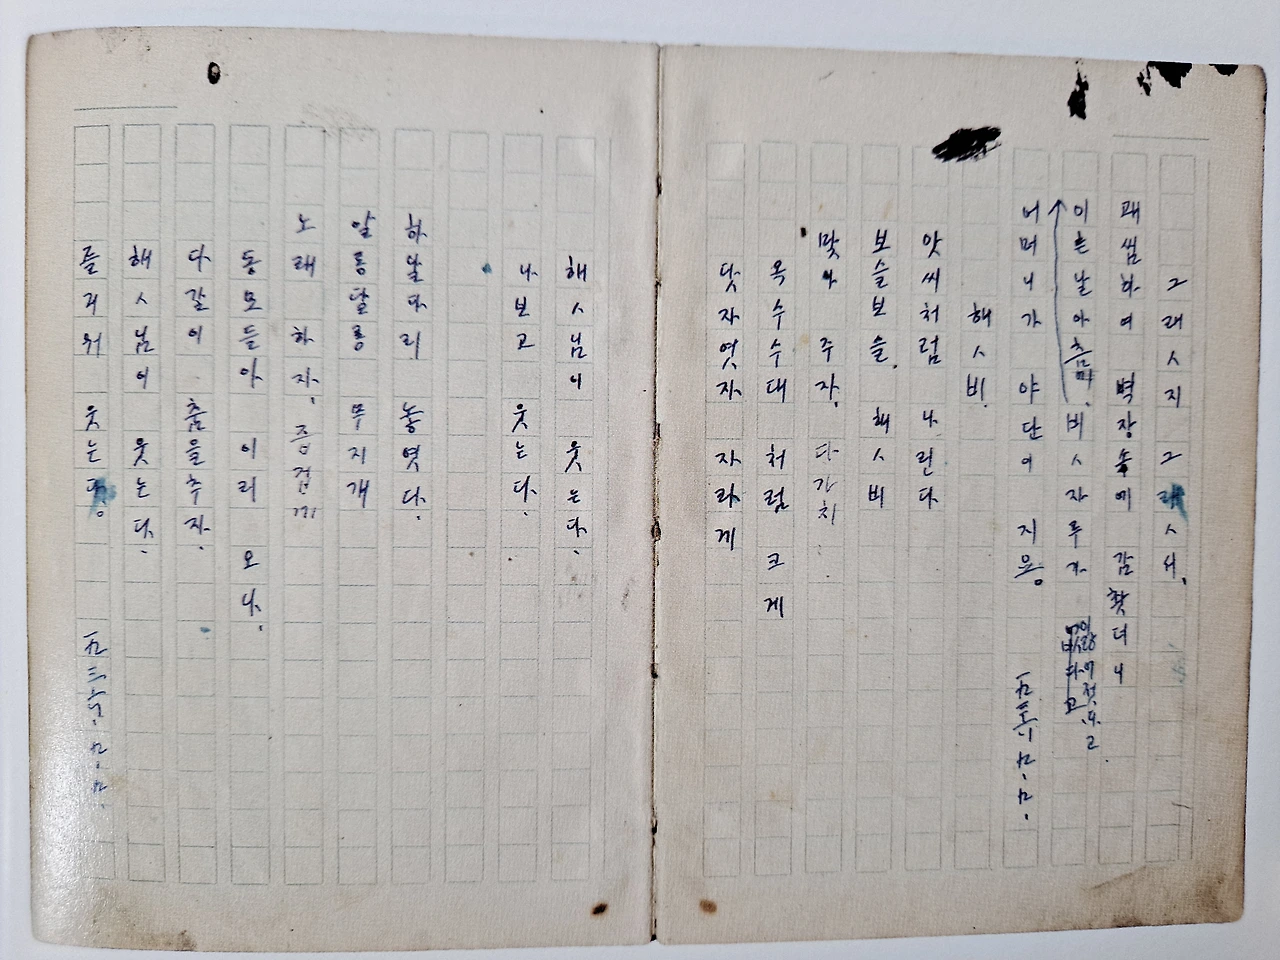 그래ㅅ지 그래ㅅ서.
괘씸하여 벽장속에 감찻더니
이튼날아츰에 비ㅅ자루가
업다고
어머니가 야단이 지요。
해ㅅ비.
앗씨처럼 나린다
보슬보슬. 해ㅅ비
맞아 주자. 다가치.
옥수수대 처럼 크게
닷자엿자 자라게
해ㅅ님이 웃는다.
나보고 웃는다.
하날다리 놓엿다.
알롱달롱 무지개
노래 하자. 즐겁게
동모들아 이리 오나.
다갈이 춤을추자.
해ㅅ님이 웃는다.
즐거워 웃는다。